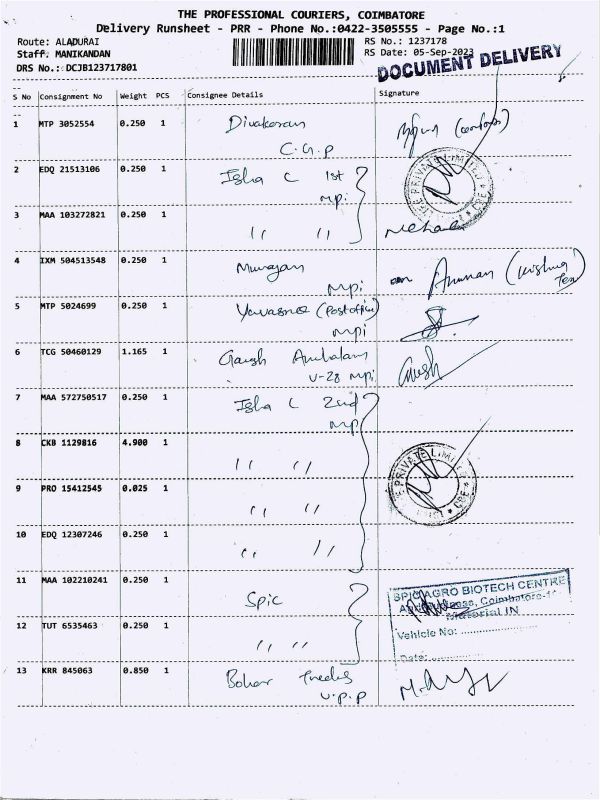 THE PROFESSIONAL COURIERS, COIMBATORE
Delivery Runsheet - PRR - Phone No.:0422-3505555 - Page No.:1
Route: ALADURAI
RS No.: 1237178
Staff: MANIKANDAN
RS Date: 05-Sep-2023
DRS No.: DCJB123717801
DOCUMENT DELIVERY
S No Consignment No Weight PCS Consignee Details Signature
1 MTP 3052554 0.250 1 Divakaran
C.G.P
2 EDQ 21513106 0.250 1 Isha C 1st
mpi
3 MAA 103272821 0.250 1 " "
4 IXM 504513548 0.250 1 Murugan
mpi
5 MTP 5024699 0.250 1 (Post office)
mpi
6 TCG 50460129 1.165 1
V-28 mpi
7 MAA 572750517 0.250 1 Isha C 2nd
mp
8 CKB 1129816 4.900 1 " "
9 PRO 15412545 0.025 1 " "
10 EDQ 12307246 0.250 1 " "
11 MAA 102210241 0.250 1 Spic
SPIC AGRO BIOTECH CENTRE
Coimbatore
Material IN
12 TUT 6535463 0.250 1 " "
Vehicle No:
Date:
13 KRR 845063 0.850 1
V.P.P